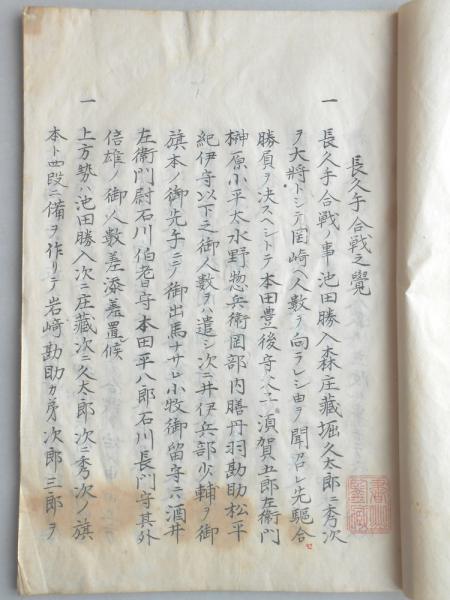 長久手合戦之覺
一 長久手合戦ノ事池田勝入森庄藏堀久太郎ニ秀次
ヲ大將トシテ罡崎ヘ人數ヲ向ラレシ由ヲ聞召レ先駆合
勝負ヲ決スヘシトテ本田豊後守 須賀五郎左衛門
榊原小平太水野惣兵衛罡部内膳丹羽勘助松平
紀伊守以下之御人數ヲハ遣シ次ニ井伊兵部少輔ヲ御
旗本ノ御先手ニテ御出馬ナサレ小牧御留守ニハ酒井
左衛門尉石川伯耆守本田平八郎石川長門守其外
信雄ノ御人數差添差置レ候
一 上方勢ハ池田勝入次ニ庄藏次ニ久太郎次ニ秀次ノ旗
本ト四段ニ備ヲ作リテ岩崎勘助カ弟次郎三郎ヲ